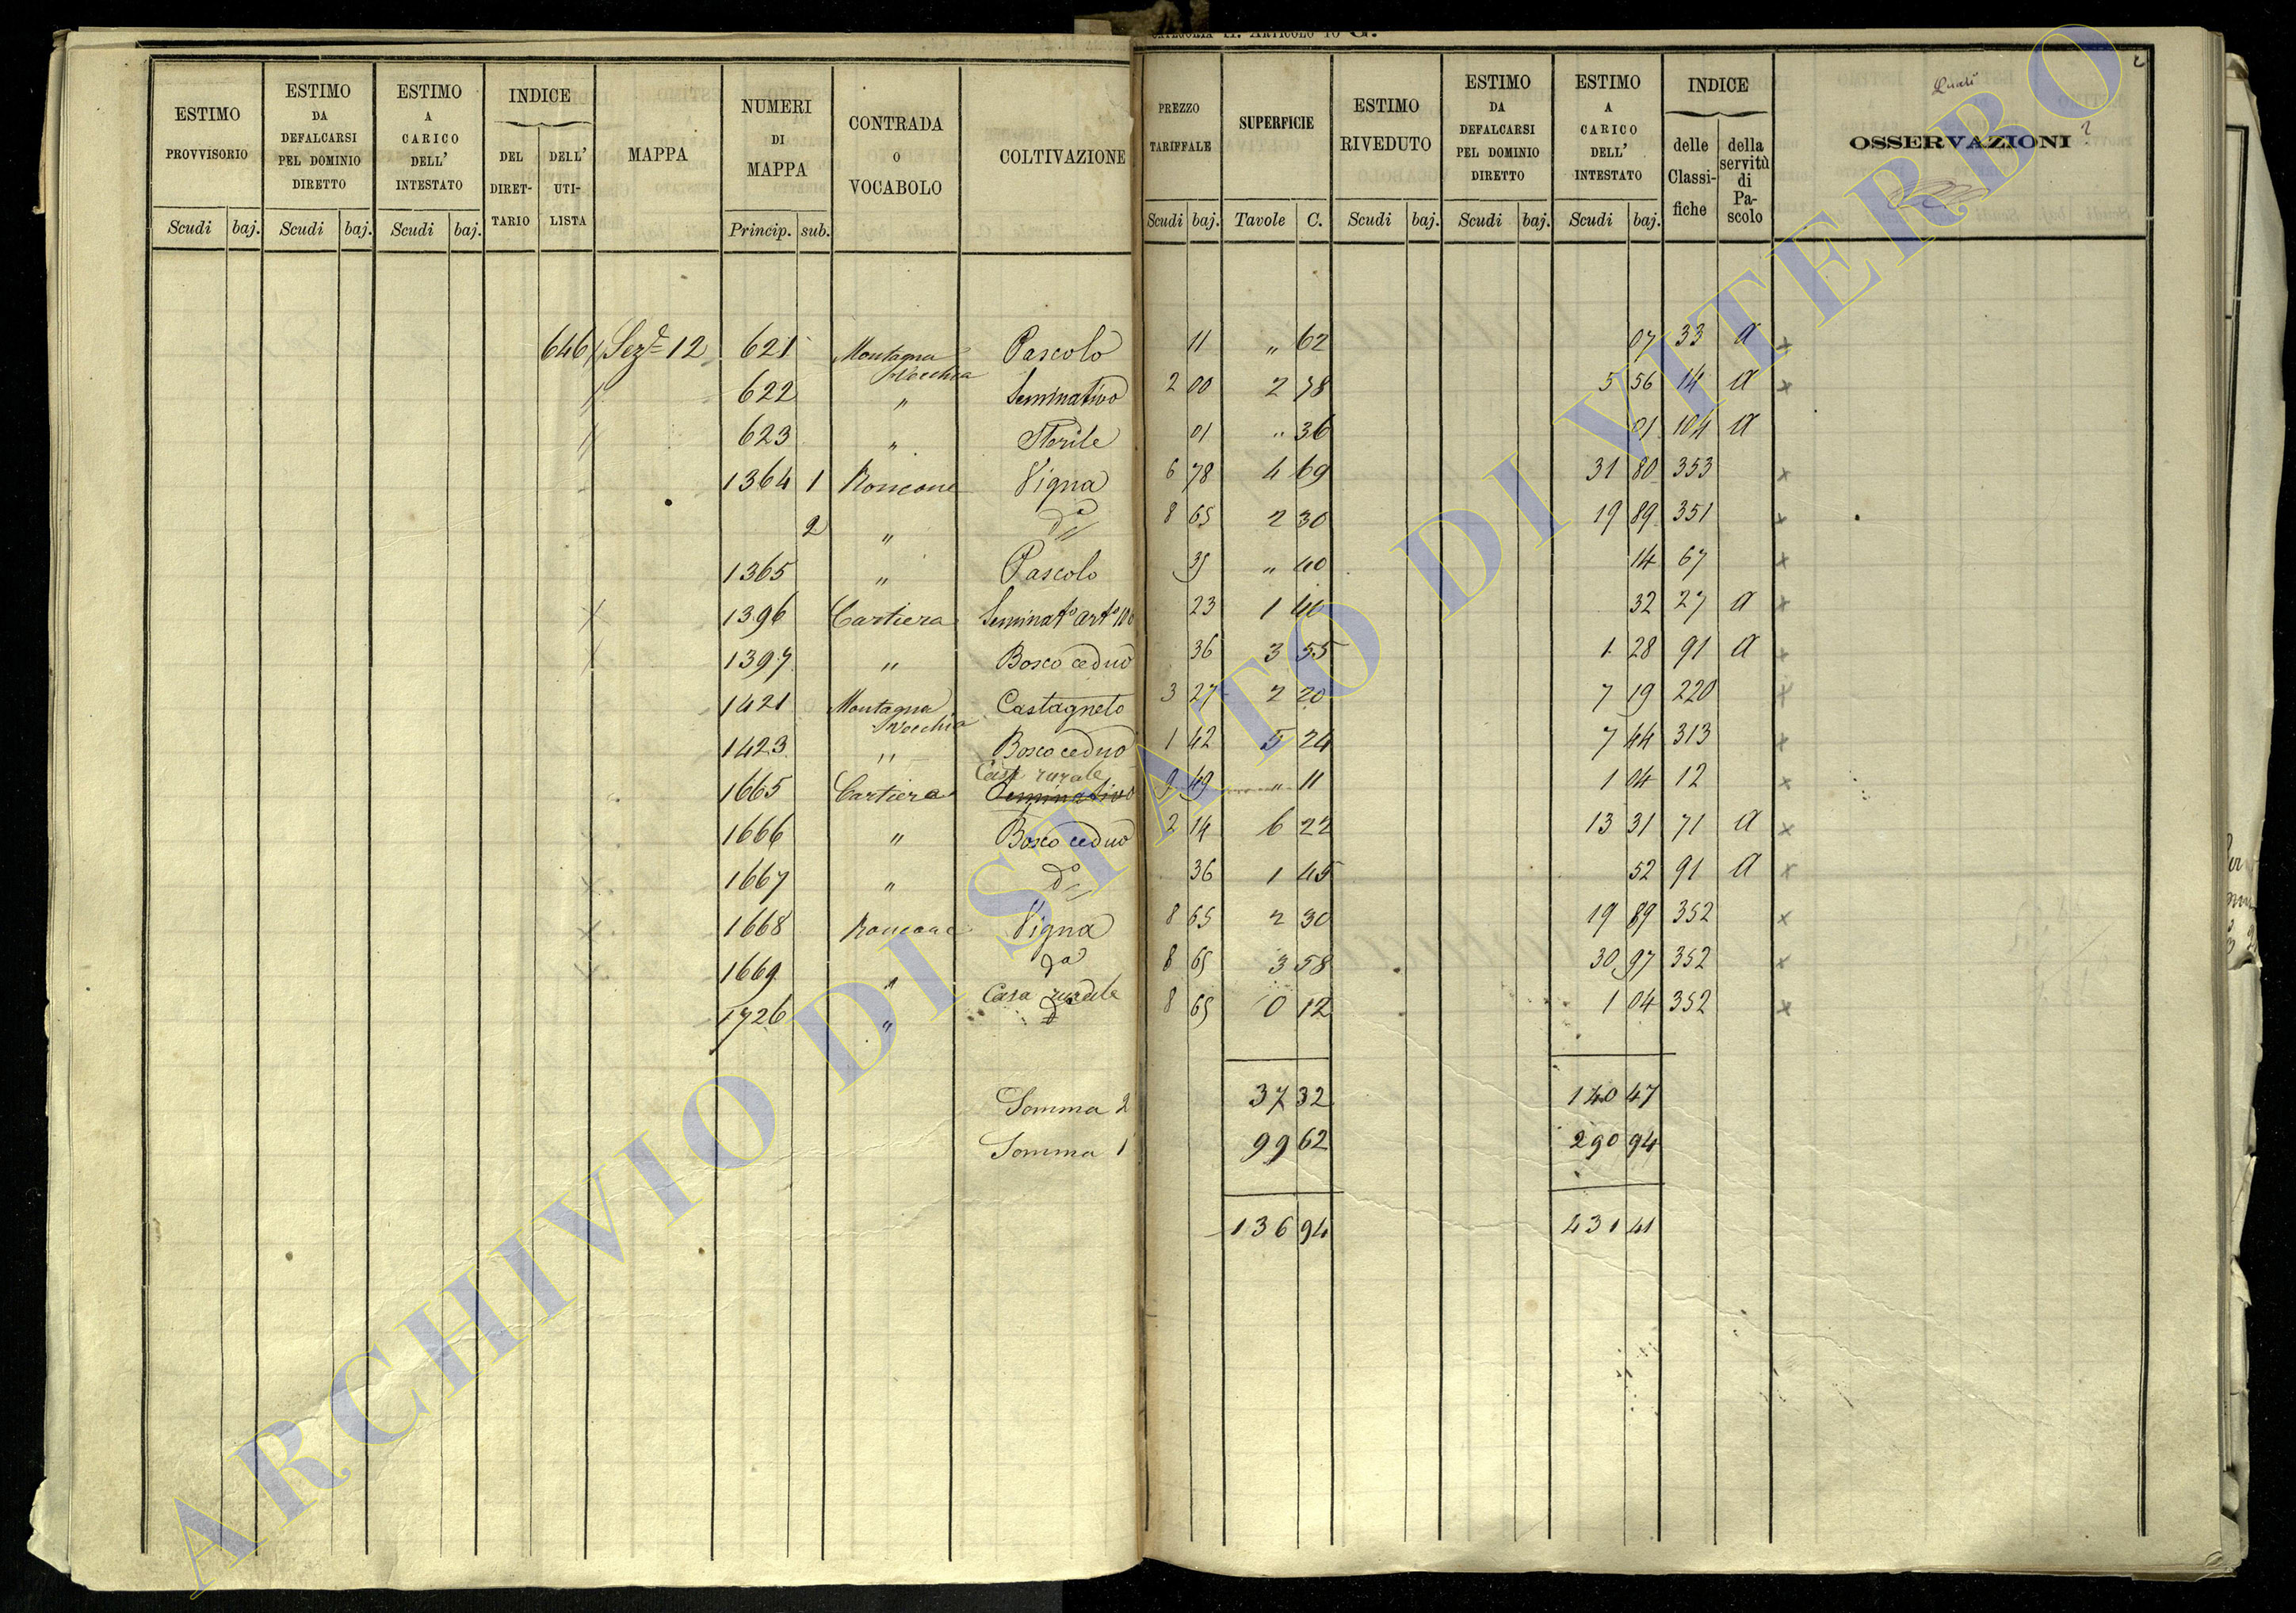 CATEGORIA II. ARTICOLO 10 G.
ESTIMO PROVVISORIO | ESTIMO DA DEFALCARSI PEL DOMINIO DIRETTO | ESTIMO A CARICO DELL' INTESTATO | INDICE DEL DIRET- TARIO | DELL' UTI- LISTA | MAPPA | NUMERI DI MAPPA | CONTRADA O VOCABOLO | COLTIVAZIONE | PREZZO TARIFFALE | SUPERFICIE | ESTIMO RIVEDUTO | ESTIMO DA DEFALCARSI PEL DOMINIO DIRETTO | ESTIMO A CARICO DELL' INTESTATO | INDICE delle Classi- fiche | della servitù di Pa- scolo | OSSERVAZIONI
Scudi | baj. | Scudi | baj. | Scudi | baj. | Princip. | sub. | Scudi | baj. | Tavole | C. | Scudi | baj. | Scudi | baj. | Scudi | baj.
646 | Sez.e 12 | 621 | Montagna Vecchia | Pascolo | 11 | " 62 | 07 | 33 | a | x
622 | " | Seminativo | 2 00 | 2 78 | 5 56 | 14 | a | x
623 | " | Sterile | 01 | " 36 | 01 | 104 | a
1364 | 1 | Roncone | Vigna | 6 78 | 4 69 | 31 80 | 353 | x
2 | " | do | 8 65 | 2 30 | 19 89 | 351 | x
1365 | " | Pascolo | 35 | " 40 | 14 | 67 | x
x | 1396 | Cartiera | Seminato arto | 23 | 1 40 | 32 | 27 | a | x
1397 | " | Bosco ceduo | 36 | 3 55 | 1 28 | 91 | a | x
1421 | Montagna Vecchia | Castagneto | 3 27 | 2 20 | 7 19 | 220 | x
1423 | " | Bosco ceduo | 1 42 | 5 24 | 7 44 | 313 | x
1665 | Cartiera | Casa rurale Seminativo | 9 49 | " 11 | 1 04 | 12 | x
1666 | " | Bosco ceduo | 2 14 | 6 22 | 13 31 | 71 | a | x
x | 1667 | " | do | 36 | 1 45 | 52 | 91 | a | x
x | 1668 | Roncone | Vigna | 8 65 | 2 30 | 19 89 | 352 | x
x | 1669 | " | do | 8 65 | 3 58 | 30 97 | 352 | x
1726 | " | Casa rurale | 8 65 | 0 12 | 1 04 | 352 | x
Somma 2 | 37 32 | 140 47
Somma 1 | 99 62 | 290 94
136 94 | 431 41
ARCHIVIO DI STATO DI VITERBO